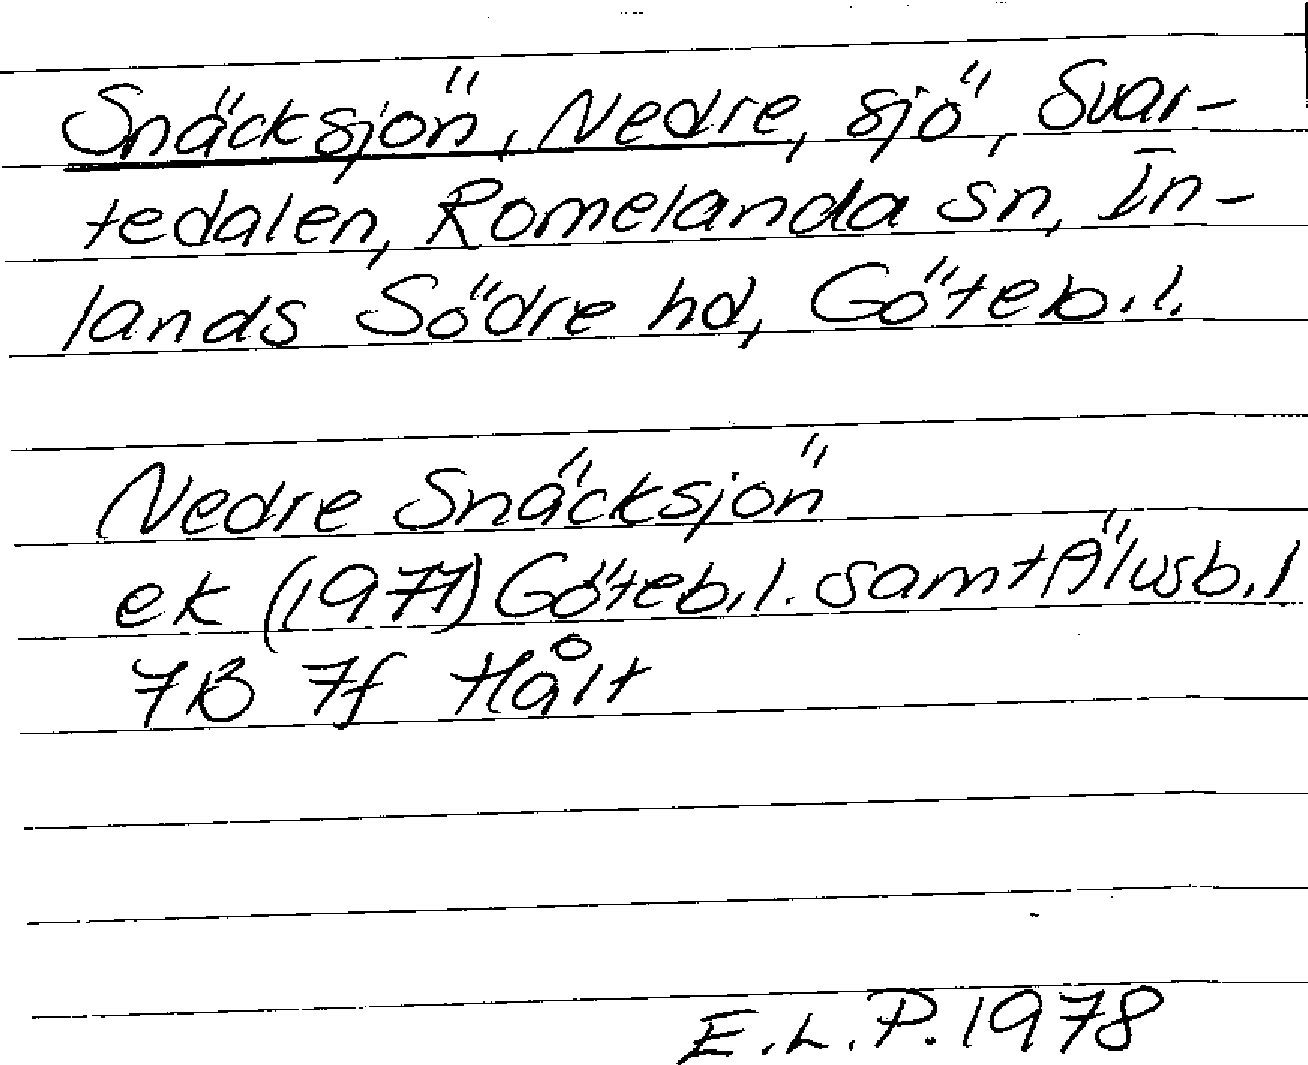 Snäcksjön, Nedre, sjö, Svar-
tedalen, Romelanda sn, In-
lands Södre hd, Göteb.l.
Nedre Snäcksjön
ek (1977) Göteb.l. samt Älvsb.l
7B 7f Hålt
E.L.P. 1978